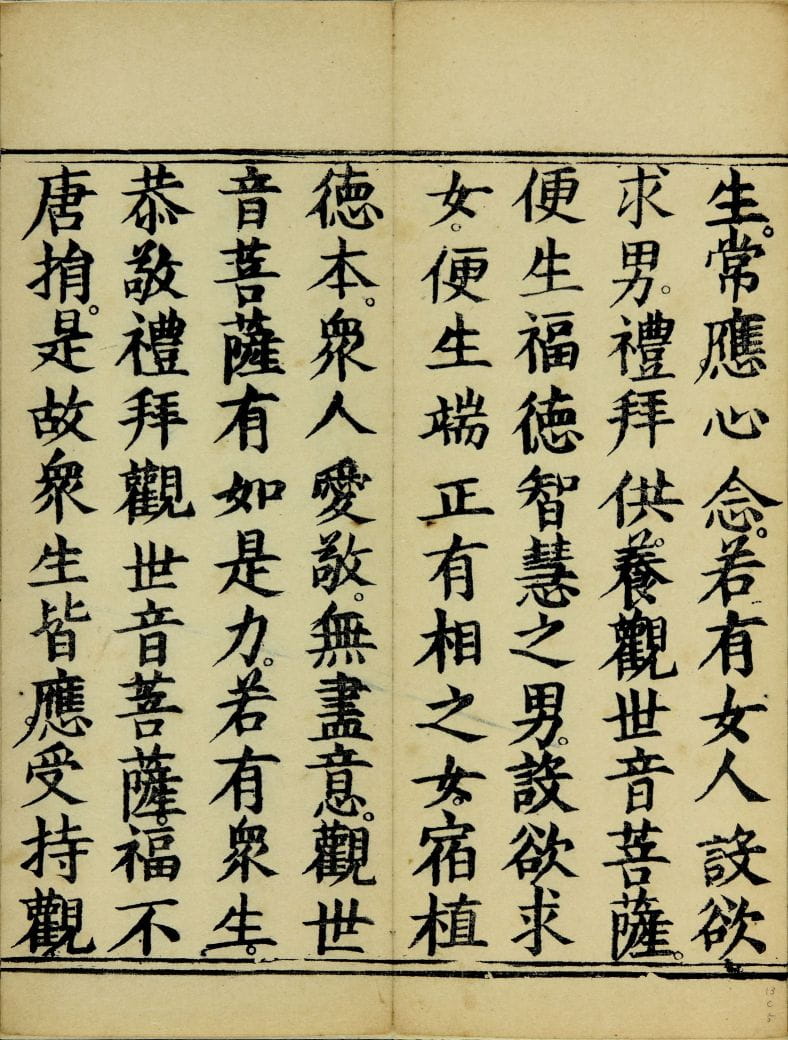 生。常應心念。若有女人設欲
求男。禮拜供養。觀世音菩薩。
便生福德智慧之男。設欲求
女。便生端正有相之女。宿植
德本。衆人愛敬。無盡意。觀世
音菩薩有如是力。若有衆生。
恭敬禮拜觀世音菩薩。福不
唐捐。是故衆生皆應受持觀
13
C
5